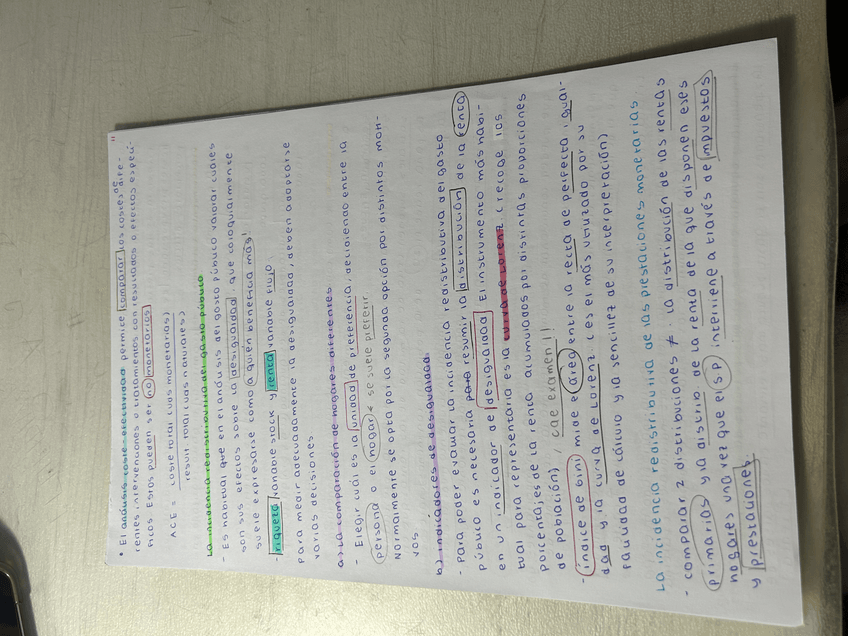 • El análisis coste-efectividad permite comparar los costes de dife-
rentes intervenciones o tratamientos con resultados o efectos especí-
ficos. Estos pueden ser no monetarios
ACE = coste total (uds monetarias)
result total (uds naturales)
La incidencia redistributiva del gasto público
- Es habitual que en el análisis del gasto público valorar cuales
son sus efectos sobre la desigualdad, que coloquialmente
suele expresarse como a quién beneficia más!
- riqueza variable stock y renta variable flujo
Para medir adecuadamente la desigualdad, deben adoptarse
varias decisiones
a) La comparación de hogares diferentes
- Elegir cuál es la unidad de preferencia, decidiendo entre la
persona o el hogar * se suele preferir.
Normalmente se opta por la segunda opción por distintos moti-
vos
b) Indicadores de desigualdad.
- Para poder evaluar la incidencia redistributiva del gasto
público es necesaria para resumir la distribución de la renta
en un indicador de desigualdad. El instrumento más habi-
tual para representarla es la curva de Lorenz (recoge los
porcentajes de la renta acumulados por distintas proporciones
de población) / cae examen!!
- índice de Gini mide el área entre la recta de perfecta igual-
dad y la curva de Lorenz. (es el más utilizado por su
facilidad de cálculo y la sencillez de su interpretación)
La incidencia redistributiva de las prestaciones monetarias.
- comparar 2 distribuciones ≠: la distribución de las rentas
primarias y la distrib de la renta de la que disponen esos
hogares una vez que el SP interviene a través de impuestos
y prestaciones.